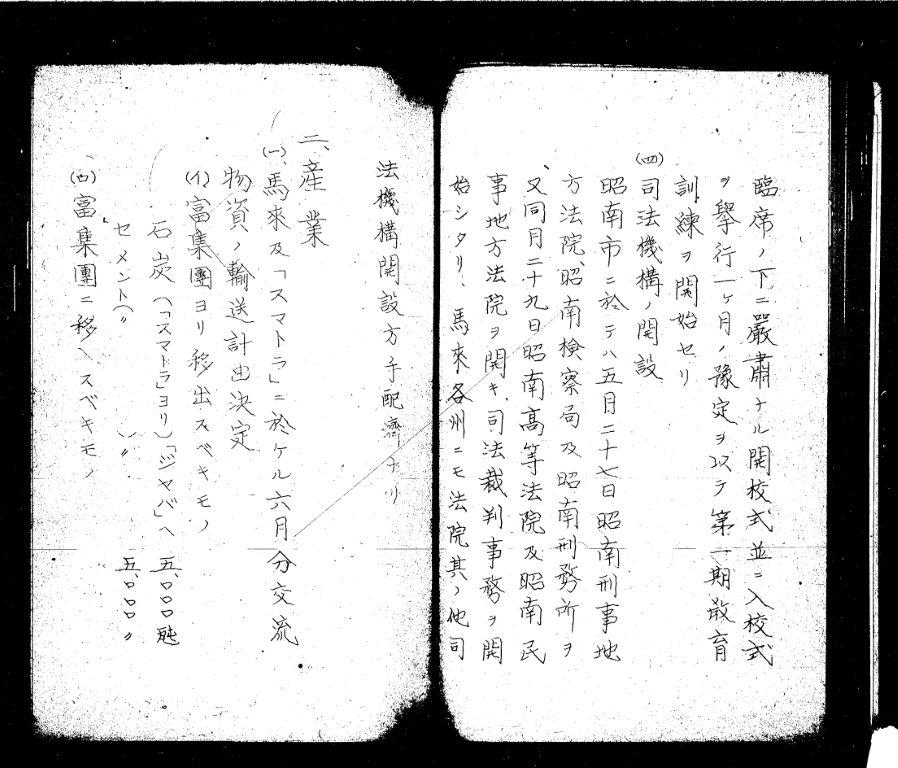 臨席ノ下ニ嚴肅ナル開校式並ニ入校式
ヲ擧行一ヶ月ノ豫定ヲ以テ第一期敎育
訓練ヲ開始セリ
(四)司法機構ノ開設
昭南市ニ於テハ五月二十七日昭南刑事地
方法院、昭南検察局及昭南刑務所ヲ
又同月二十九日昭南高等法院及昭南民
事地方法院ヲ開キ、司法裁判事務ヲ開
始シタリ、馬來各州ニモ法院其ノ他司
法機構開設方手配濟ナリ
二、産業
(一)馬來及「スマトラ」ニ於ケル六月分交流
物資ノ輸送計出決定
(イ)富集團ヨリ移出スベキモノ
石炭(「スマトラ」ヨリ)「ジヤバ」ヘ 五、〇〇〇瓲
セメント(〃 )〃 五、〇〇〇〃
(ロ)富集團ニ移入スベキモノ